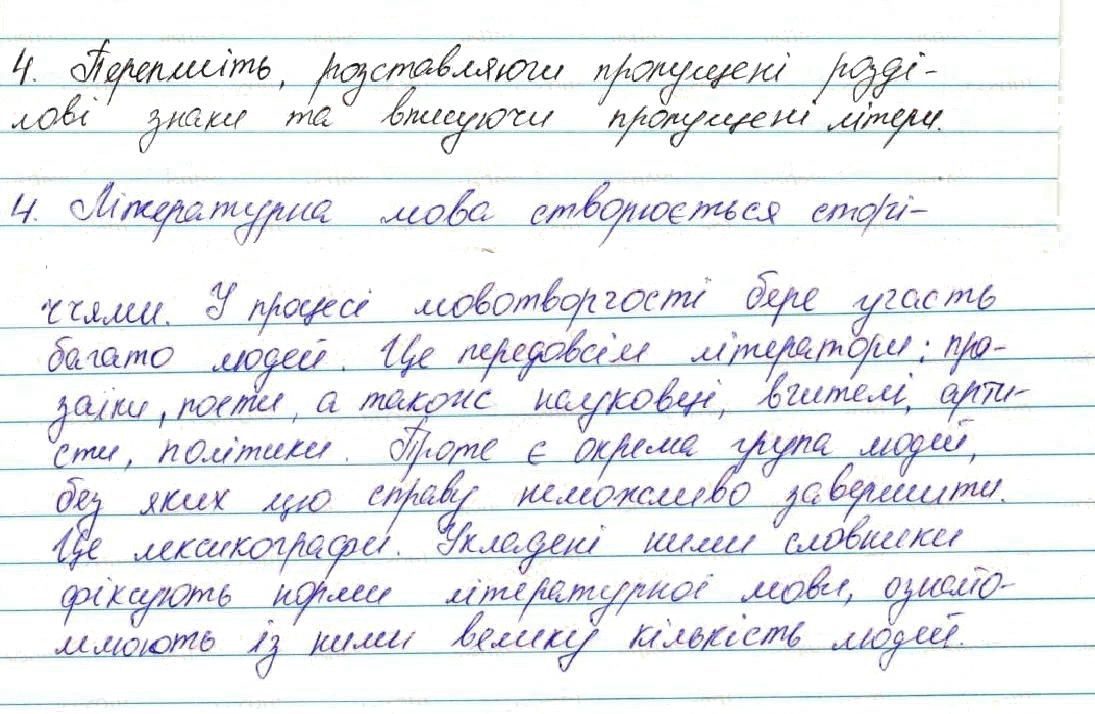 4. Перепишіть, розставляючи пропущені розді-
лові знаки та вписуючи пропущені літери.
4. Літературна мова створюється сторі-
ччями. У процесі мовотворчості бере участь
багато людей. Це передовсім літератори: про-
заїки, поети, а також науковці, вчителі, арти-
сти, політики. Проте є окрема група людей,
без яких цю справу неможливо завершити.
Це лексикографи. Укладені ними словники
фіксують норми літературної мови, ознайо-
млюють із ними велику кількість людей.